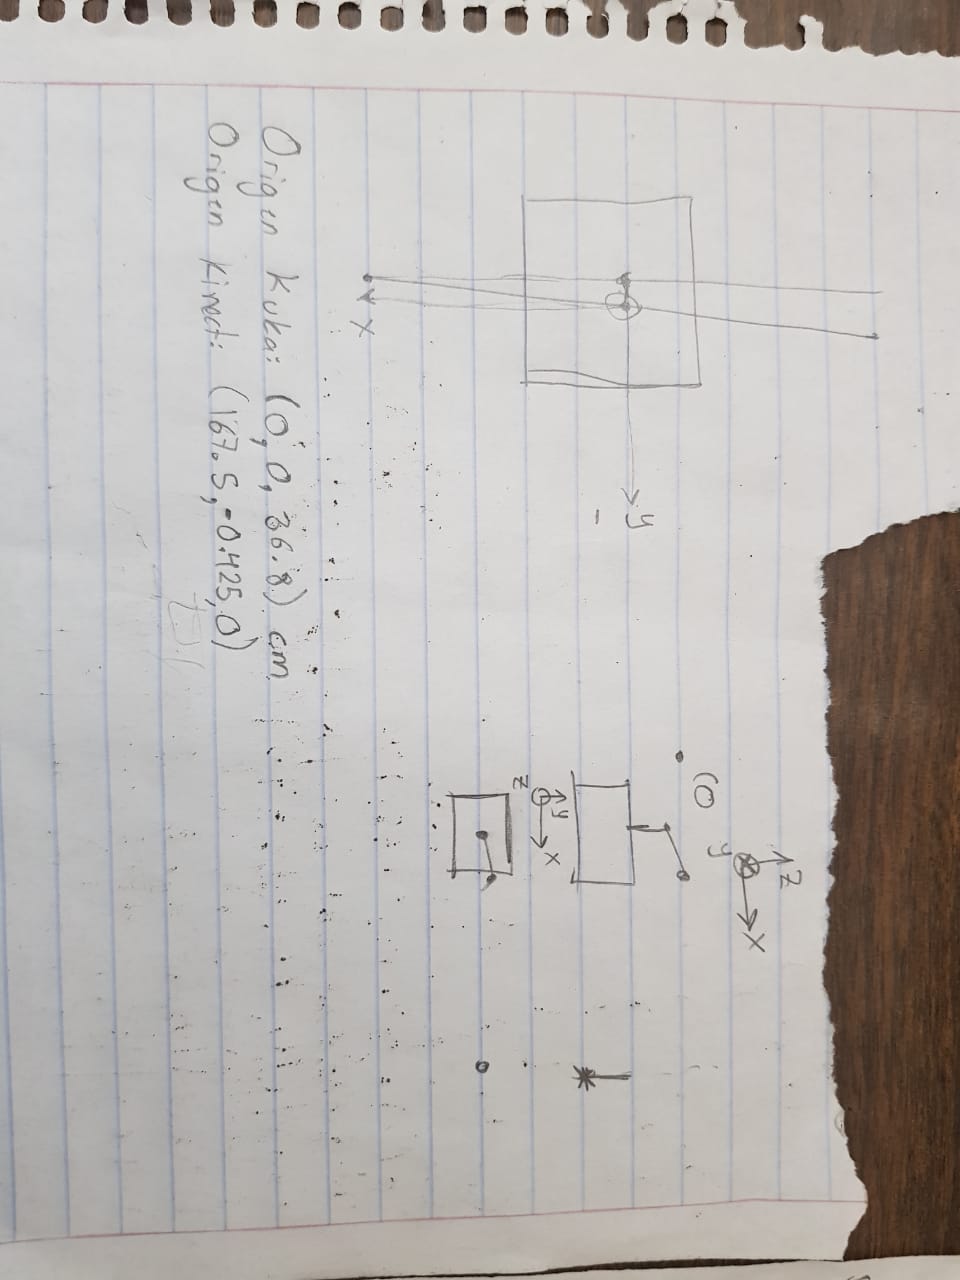 y
-
x
(0
z
y
x
y
z
x
Origen Kuka: (0, 0, 36.8) cm
Origen Kinect: (167.5, -0.425, 0)